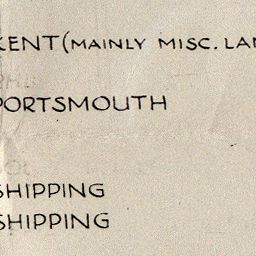 KENT (MAINLY MISC. LAN
PORTSMOUTH
SHIPPING
SHIPPING